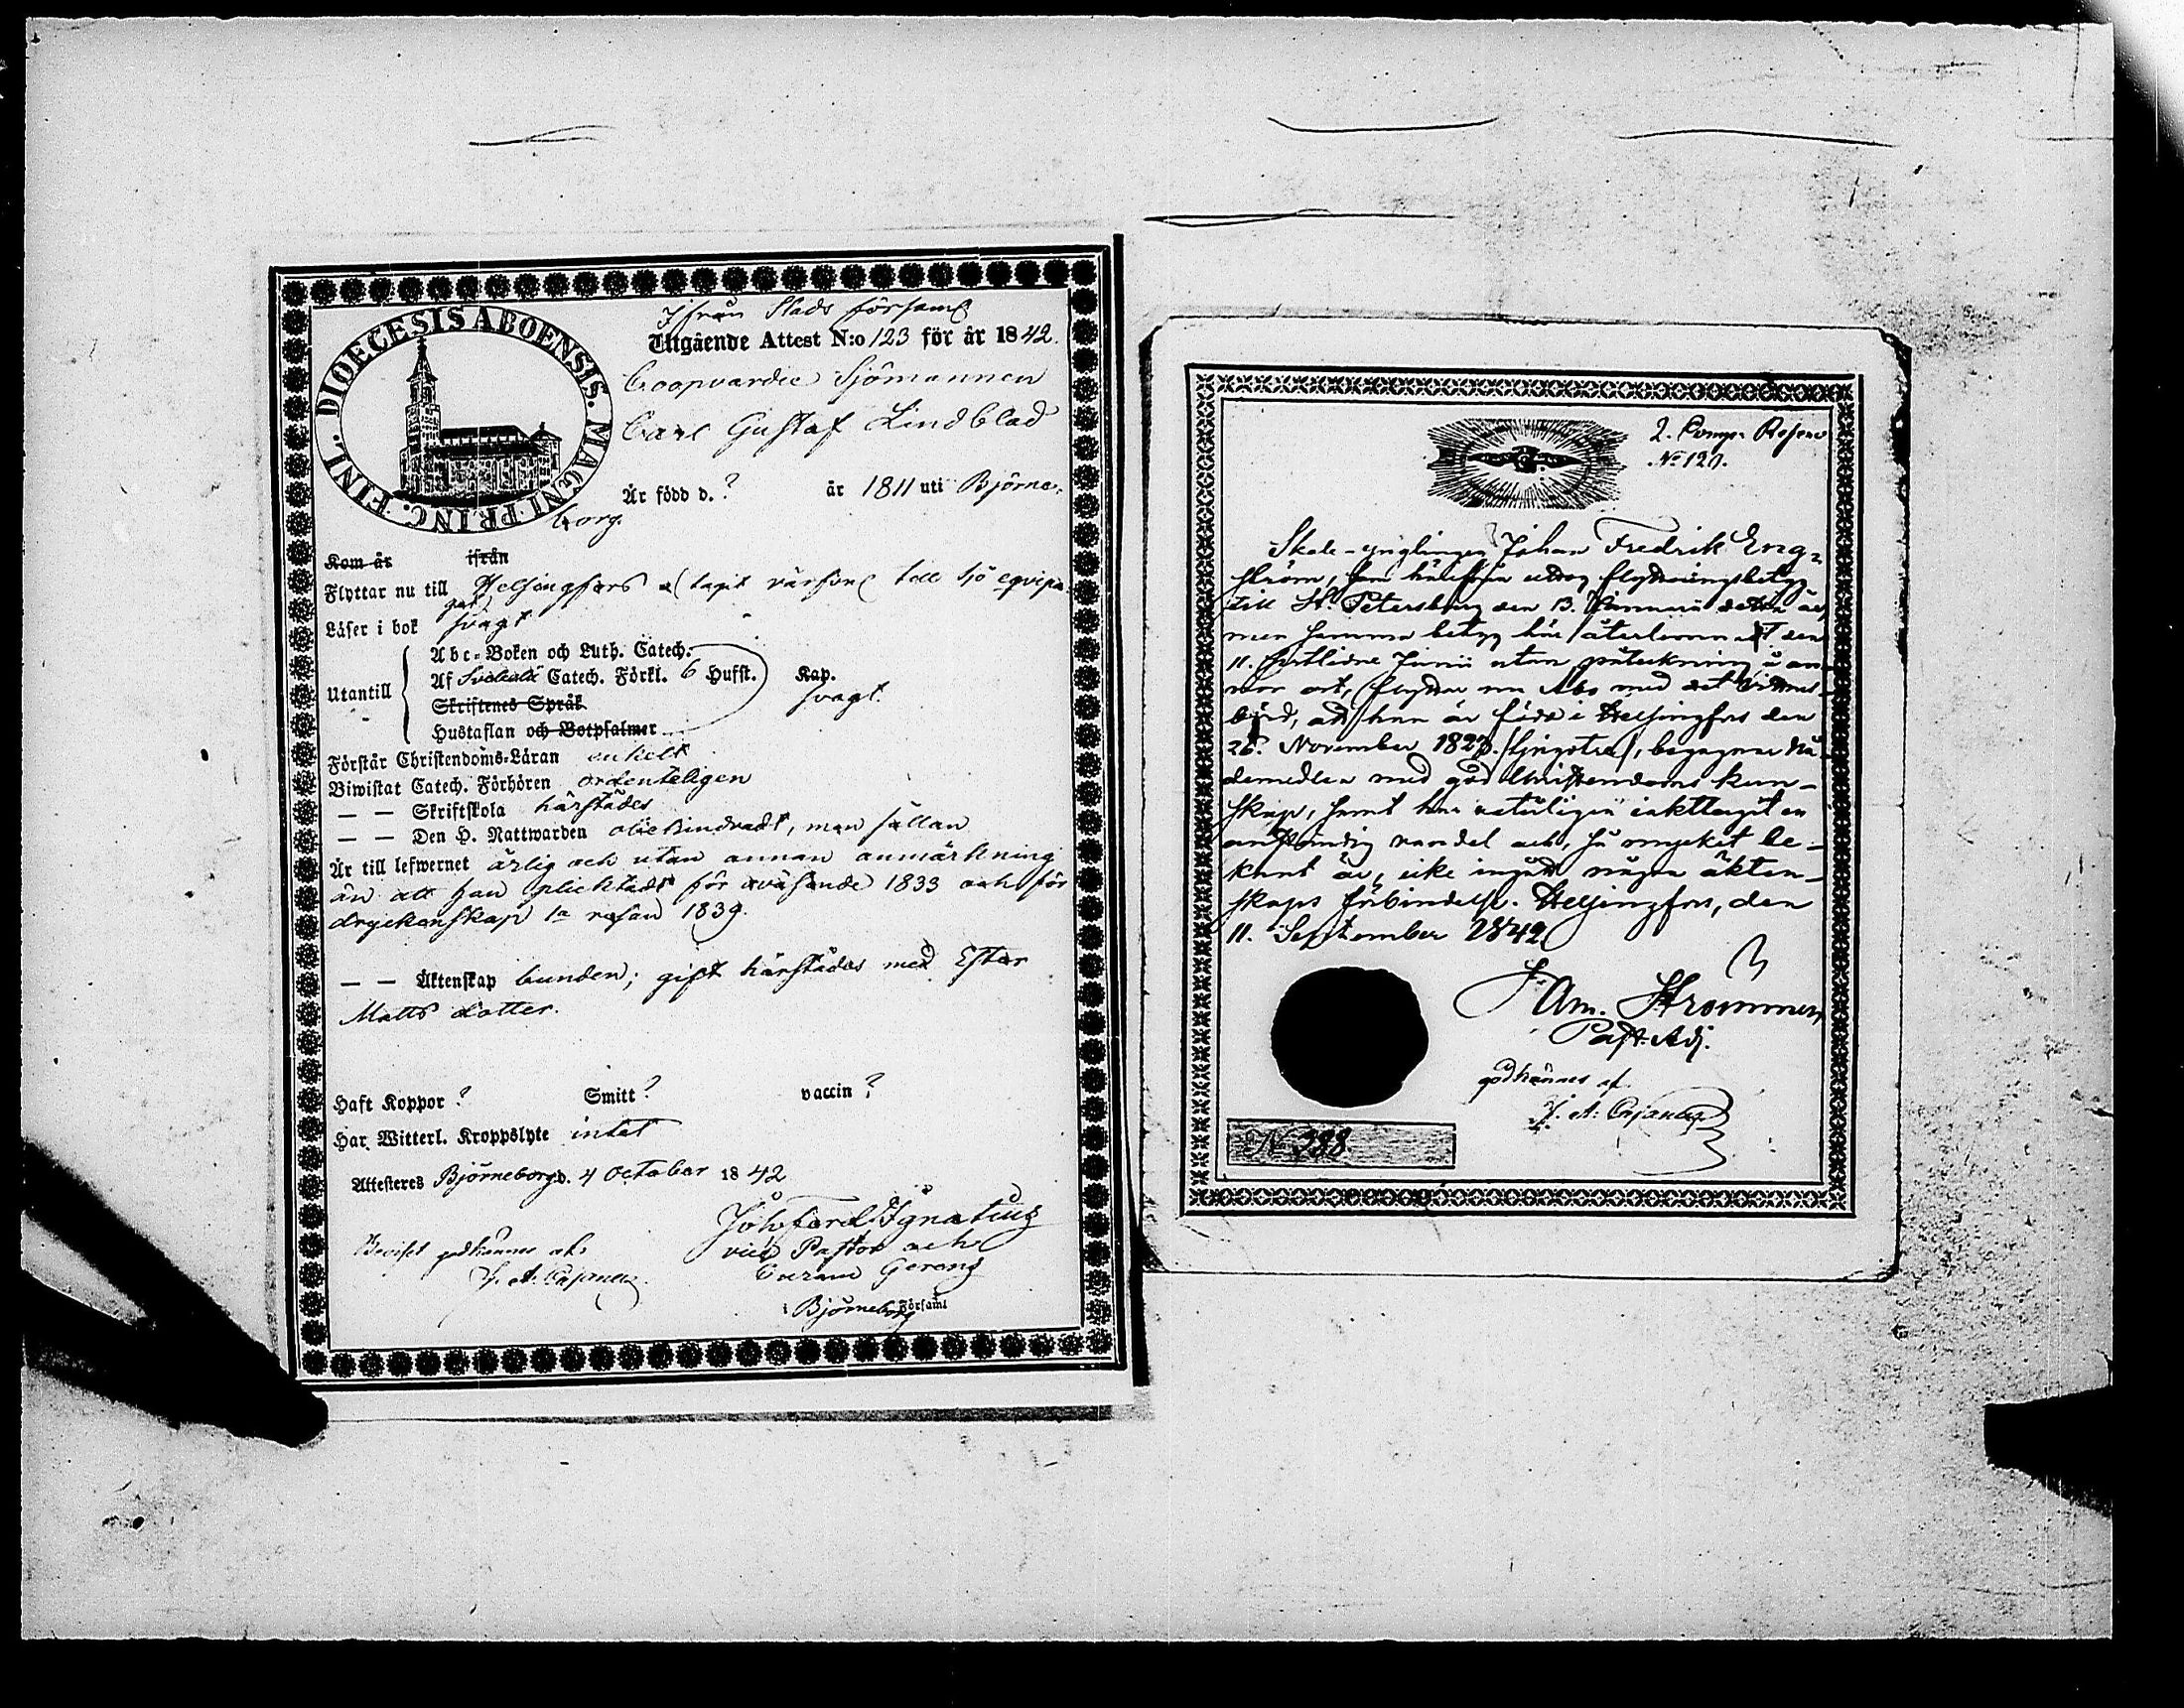 DIOECESIS ABOENSIS. MAGNI PRINC. FINL.
Ifrån Stads församl
Utgående Attest N:o 123 för år 1842.
Coopvardie Sjömannen
Carl Gustaf Lindblad
Är född d. ? år 1811 uti Björne-
borg.
Kom år ifrån
Flyttar nu till Helsingfors tagit värfvel till sjö eqvipa
get
Läser i bok svagt
Utantill
Abc-Boken och Luth. Catech.
Af Svebelii Catech. Förkl. 6 Hufst. Kap.
svagt
Skriftenes Språk
Hustaflan och Botpsalmer
Förstår Christendoms-Läran enkelt
Biwistat Catech. Förhören ordenteligen
— — Skriftskola härstädes
— — Den H. Nattwarden oliehindradt, men sällan
Är till lefwernet ärlig och utan annan anmärkning
än att han plicktadt för oväsende 1833 och för
dryckenskap 1a resan 1839.
— — Äktenskap bunden; gift härstädes med Ester
Matts dotter.
Haft Koppor ? Smitt ? vaccin ?
Har Witterl. Kroppslyte intet
Attesteres Björneborg d. 4 October 1842
Joh Ferd Ignatius
vice Pastor och
Gerens
i Björneborg Församl
Beviset godkännes af:
J. A. Cajanus
2. Comp. Reserv
No 127.
Skole-ynglingen Johan Fredrik Eng-
ström, som härifrån uttog flyttningsbetyg
till St. Petersburg den 13. Januarii detta år,
men samma betyg här återlemnat den
11. sistlidne Junii utan påteckning å an-
nor ort, flyttar nu Abo med det vittnes-
börd, att han är född i Helsingfors den
26. November 1827. begagnar Nå-
demedlen med god Christendoms kun-
skap, samt har iakttagit en
anständig vandel och, så mycket be-
kant är, icke ingått någon äkten-
skaps förbindelse. Helsingfors, den
11. September 1842
Am. Strömmer
Past. Adj.
godkännes af
J. A. Cajanus
N 388